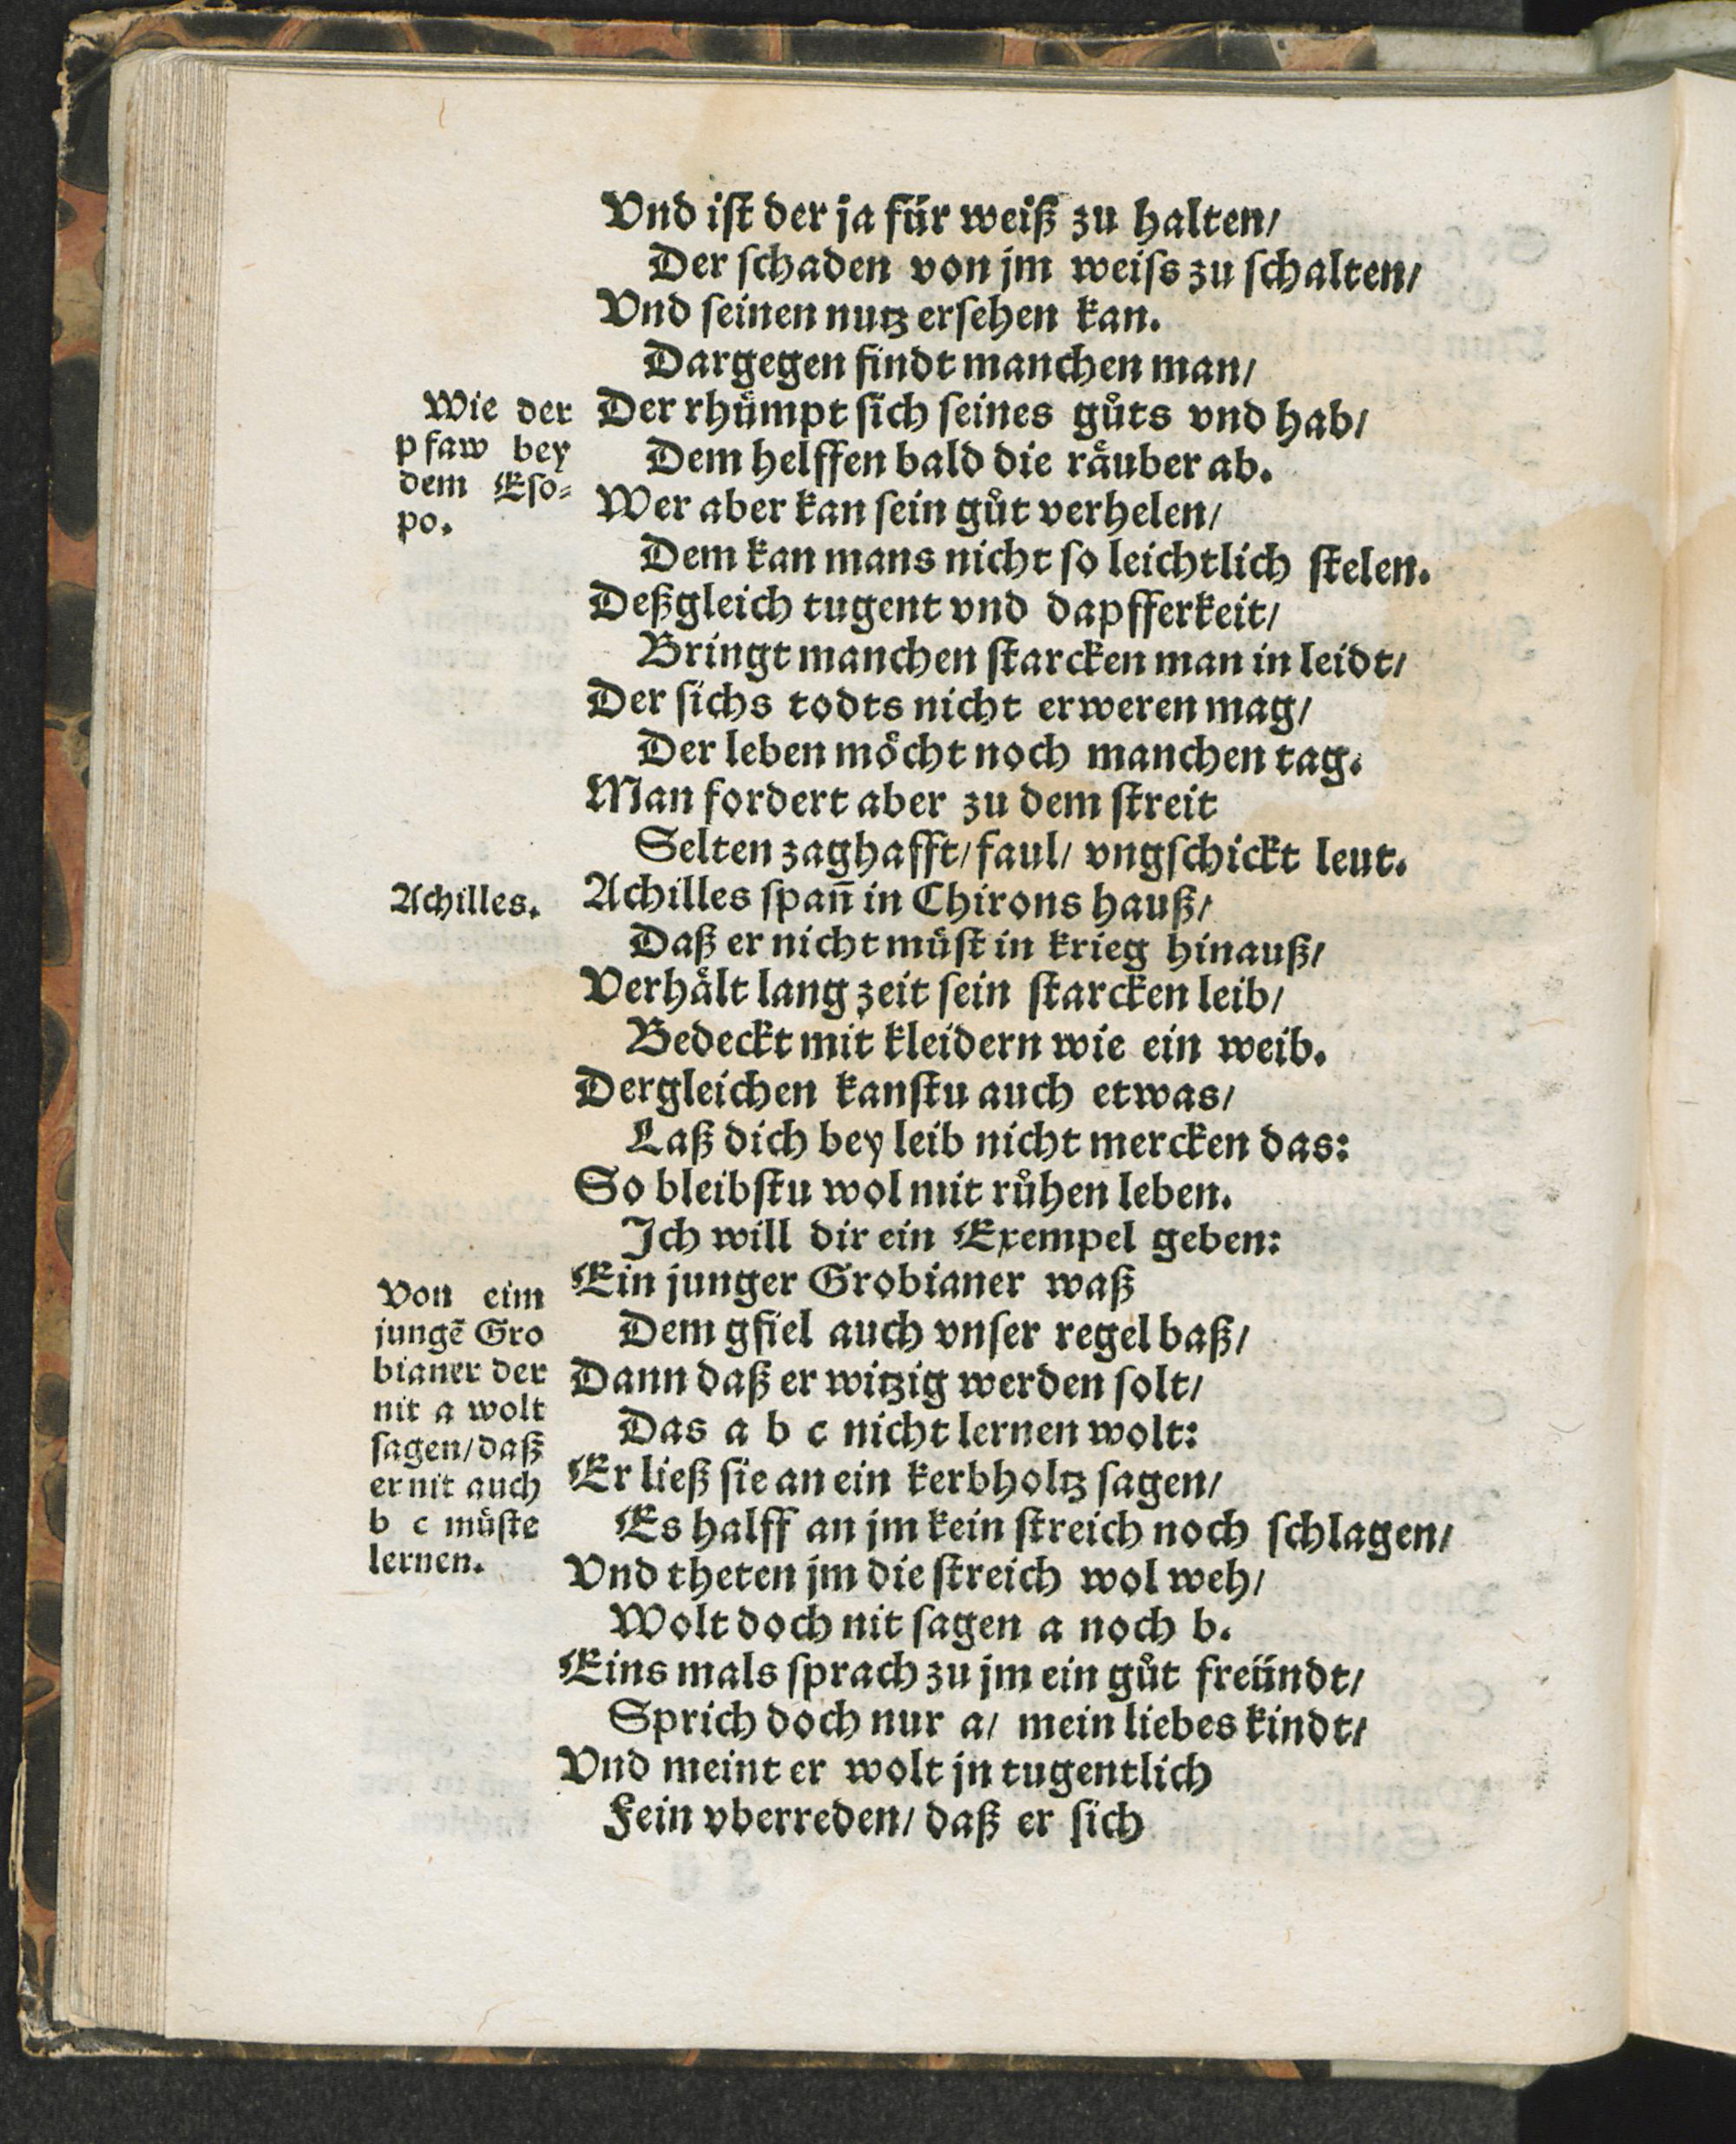 Vnd iſt der ja für weiß zu halten/
Der ſchaden von jm weiſs zu ſchalten/
Vnd ſeinen nutz erſehen kan.
Dargegen findt manchen man/
Wie der
pfaw bey
dem Eſo⸗
po.
Der rhuͤmpt ſich ſeines guͦts vnd hab/
Dem helffen bald die raͤuber ab.
Wer aber kan ſein guͦt verhelen/
Dem kan mans nicht ſo leichtlich ſtelen.
Deßgleich tugent vnd dapfferkeit/
Bringt manchen ſtarcken man in leidt/
Der ſichs todts nicht erweren mag/
Der leben moͤcht noch manchen tag.
Man fordert aber zu dem ſtreit
Selten zaghafft/ faul/ vngſchickt leut.
Achilles.
Achilles ſpan̄ in Chirons hauß/
Daß er nicht muͤſt in krieg hinauß/
Verhaͤlt lang zeit ſein ſtarcken leib/
Bedeckt mit kleidern wie ein weib.
Dergleichen kanſtu auch etwas/
Laß dich bey leib nicht mercken das:
So bleibſtu wol mit ruͦhen leben.
Ich will dir ein Exempel geben:
Von eim
jungē Gro
bianer der
nit a wolt
ſagen/daß
er nit auch
b c muͤſte
lernen.
Ein junger Grobianer waß
Dem gfiel auch vnſer regel baß/
Dann daß er witzig werden ſolt/
Das a b c nicht lernen wolt:
Er ließ ſie an ein kerbholtz ſagen/
Es halff an jm kein ſtreich noch ſchlagen/
Vnd theten jm die ſtreich wol weh/
Wolt doch nit ſagen a noch b.
Eins mals ſprach zu jm ein guͦt freündt/
Sprich doch nur a/ mein liebes kindt/
Vnd meint er wolt jn tugentlich
Fein vberreden/ daß er ſich